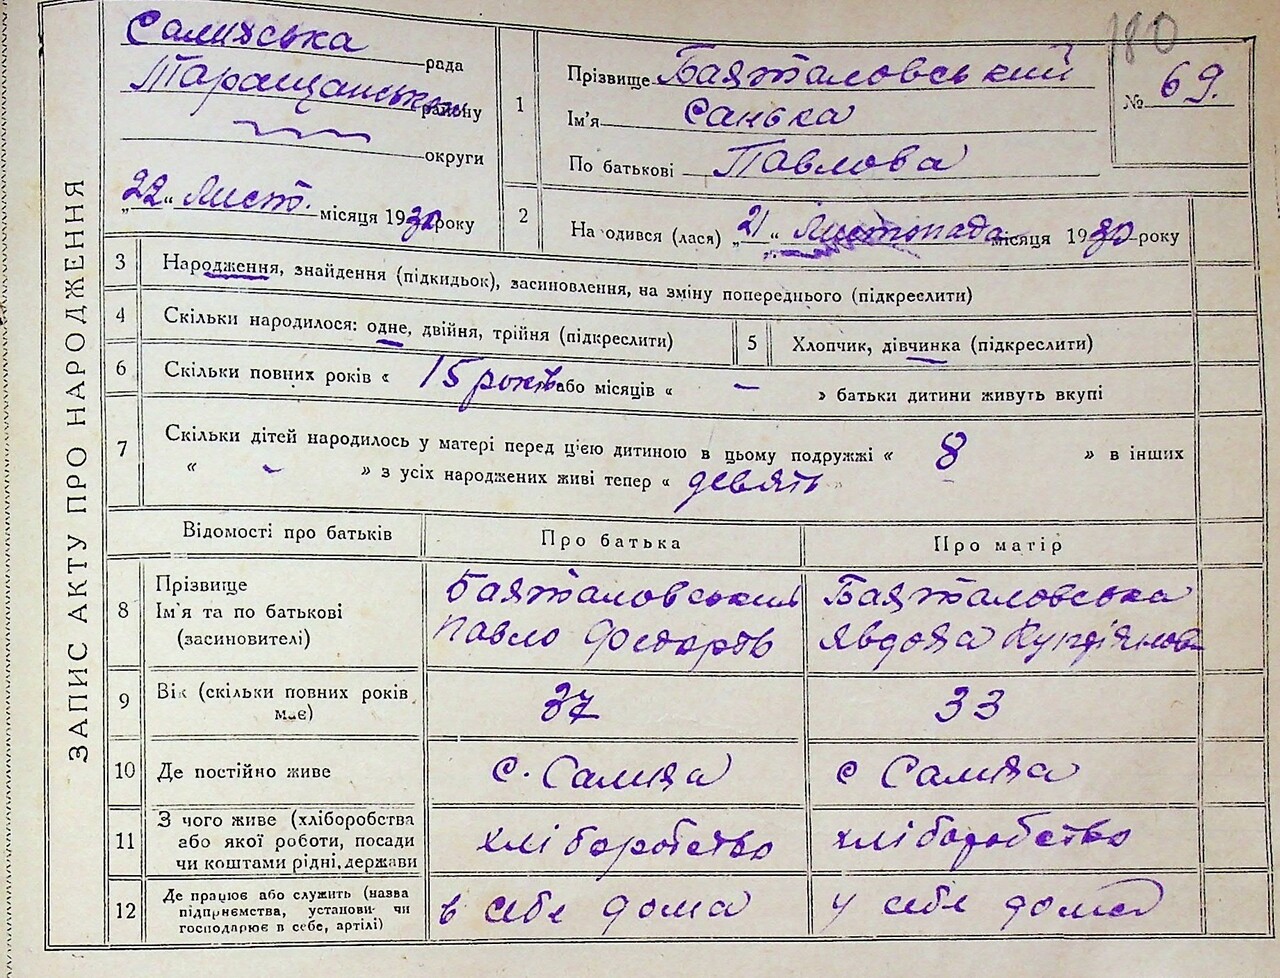 ЗАПИС АКТУ ПРО НАРОДЖЕННЯ
180
Салихська рада
Таращанського району
округи
„22“ Лист. місяця 1930 року
1
Прізвище Баяталовський
Ім'я Санька
По батькові Павлова
№ 69.
2
На одився (лася) „21“ Листопада місяця 1930 року
3 Народження, знайдення (підкидьок), засиновлення, на зміну попереднього (підкреслити)
4 Скільки народилося: одне, двійня, трійня (підкреслити)
5 Хлопчик, дівчинка (підкреслити)
6 Скільки повних років « 15 років або місяців « — » батьки дитини живуть вкупі
7 Скільки дітей народилось у матері перед цією дитиною в цьому подружжі « 8 » в інших
« - » з усіх народжених живі тепер « девять »
Відомості про батьків Про батька Про матір
8 Прізвище Баяталовський Баяталовська
Ім'я та по батькові Павло Федорів Явдоха
(засиновителі)
9 Вік (скільки повних років 37 33
має)
10 Де постійно живе с. Салиха с Салиха
11 З чого живе (хліборобства хліборобство хліборобство
або якої роботи, посади
чи коштами рідні, держави
12 Де працює або служить (назва в себе дома у себе дома
підприємства, установи чи
господарює в себе, артілі)